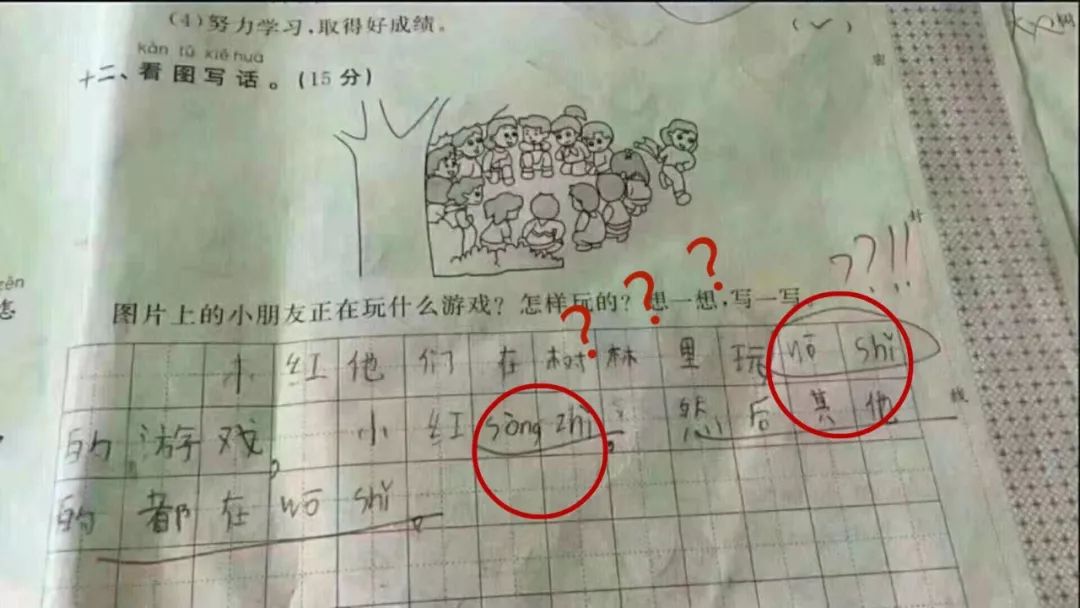 (4)努力学习,取得好成绩。 (✓)
kàn tú xiě huà
十二、看图写话。(15分)
密
封
??!!!
? ? ?
图片上的小朋友正在玩什么游戏?怎样玩的?想一想,写一写。
小红他们在树林里玩wō shǐ
线
的游戏,小红sòng zhǐ,然后其他
的都在wō shǐ。